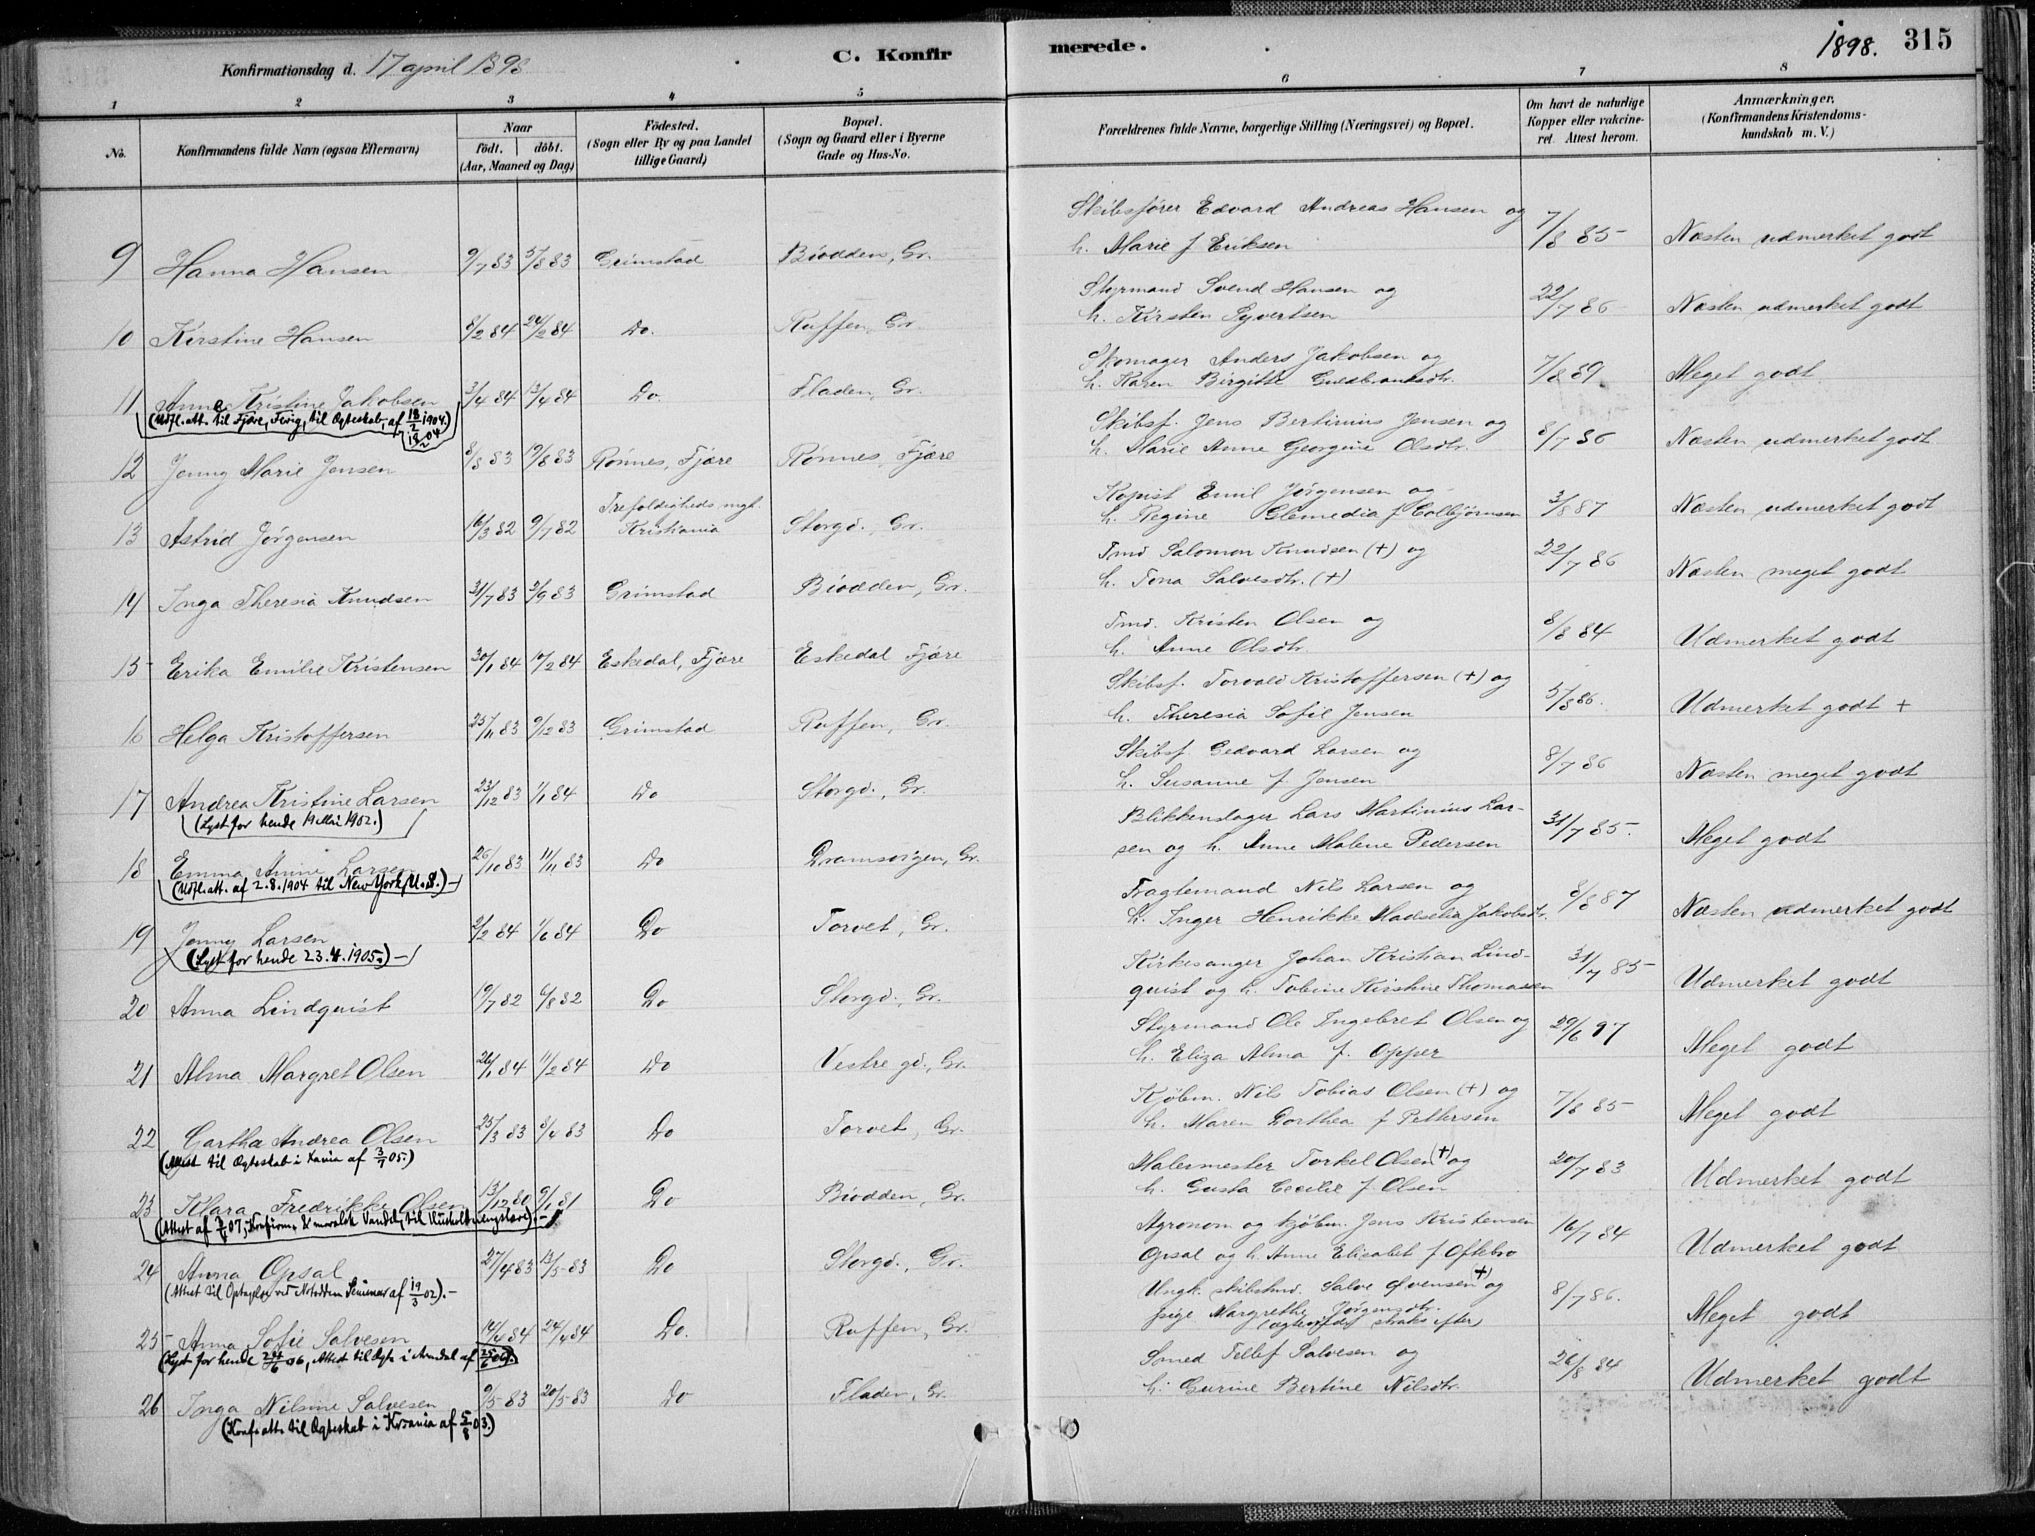 Konfirmationsdag d. 17 april 1898
C. Konfir
merede.
1898. 315
1 2 3 4 5 6 7 8
No. Konfirmandens fulde Navn (ogsaa Efternavn) Naar födt. döbt. (Aar, Maaned og Dag) Födested. (Sogn eller By og paa Landet tillige Gaard) Bopæl. (Sogn og Gaard eller i Byerne Gade og Hus-No. Forældrenes fulde Navne, borgerlige Stilling (Næringsvei) og Bopæl. Om havt de naturlige Kopper eller vakcineret. Attest herom. Anmærkninger, (Konfirmandens Kristendomskundskab m. V.)
Skibsfører Edvard Andreas Hansen og
9 Hanna Hansen 9/7 83 5/8 83 Grimstad Biodden, Gr. h. Marie f Eriksen 7/8 85 Næsten udmerket godt
Styrmand Svend Hansen og
10 Kirstine Hansen 8/2 84 24/2 84 Do. Raffen, Gr. h. Kirsten Syvertsen 22/7 86 Næsten udmerket godt
Skomager Anders Jakobsen og
11 Anna Kristine Jakobsen 3/4 84 13/4 84 Do. Fladen, Gr. h. Karen Birgitte Guldbrandsdtr. 7/8 89 Meget godt
(Udfl. att. til Fjære, Fevig, til Ægteskab, af 18/2 1904.)
Skibsf. Jens Bertinius Jensen og
12 Jenny Marie Jensen 8/8 83 19/8 83 Rønnes, Fjære Rønnes, Fjære h. Marie Anne Georgine Olsdtr. 8/7 86 Næsten udmerket godt
Trefoldigheds mgh. Kopist Emil Jørgensen og
13 Astrid Jørgensen 16/3 82 9/7 82 Kristiania Storgd., Gr. h. Regine Clemedia f Colbjørnsen 3/8 87 Næsten udmerket godt
Tmd Salomon Knudsen (+) og
14 Inga Theresia Knudsen 31/7 83 2/9 83 Grimstad Biodden, Gr. h. Tona Salvesdtr. (+) 22/7 86 Næsten meget godt
Tmd. Kristen Olsen og
15 Erika Emilie Kristensen 30/1 84 10/2 84 Eskedal, Fjære Eskedal Fjære h. Anne Olsdtr. 8/8 84 Udmerket godt
Skibsf. Torvald Kristoffersen (+) og
16 Helga Kristoffersen 25/11 83 9/12 83 Grimstad Raffen, Gr. h. Theresia Sofie Jensen 5/8 86. Udmerket godt +
Skibsf. Gedvard Larsen og
17 Andrea Kristine Larsen 23/12 83 1/1 84 Do Storgd., Gr. h. Susanne f Jensen 8/7 86 Næsten meget godt
(Lyst for hende 19 Mai 1902.)
Blikkenslager Lars Martinius Lar-
18 Emma Anine Larsen 26/10 83 11/11 83 Do Dramsvigen, Gr. sen og h. Anne Malene Pedersen 31/7 85. Meget godt
(Udfl. att. af 2.8.1904 til New York, U.S.) –
Fragtemand Nils Larsen og
19 Jenny Larsen 2/2 84 1/6 84 Do Torvet, Gr. h. Inger Henrikke Madselia Jakobsdtr. 8/8 87 Næsten udmerket godt
(Lyst for hende 23.4.1905.) –
Kirkesanger Johan Kristian Lind-
20 Anna Lindquist 19/7 82 6/8 82 Do Storgd., Gr. quist og h. Tobine Kirstine Thomassen 31/7 85 Udmerket godt
Styrmand Ole Ingebret Olsen og
21 Alma Margret Olsen 26/1 84 11/2 84 Do Vestre gd., Gr. h. Eliza Alma f. Opper 29/6 97 Meget godt
Kjøbm. Nils Tobias Olsen (+) og
22 Gartha Andrea Olsen 25/3 83 8/4 83 Do Torvet, Gr. h. Maren Dorthea f Pettersen 7/8 85 Meget godt
(Attest til Ægteskab i Xania af 3/7 05.)
Malermester Torkel Olsen (+) og
23 Klara Fredrikke Olsen 13/12 80 9/1 81 Do Biodden, Gr. h. Gusta Cecilie f. Olsen 20/7 83 Udmerket godt
Agronom og kjøbm. Jens Kristensen
24 Anna Opsal 27/4 83 13/5 83 Do Storgd., Gr. Opsal og h. Anne Elisabet f Oftebro 16/7 84 Udmerket godt
(Attest til Optagelse ved Notodden Seminar af 19/3 02). –
Ungk. skibstmd. Salve Svensen (+) og
pige Margrethe Jørgensdtr.
25 Anna Sofie Salvesen 14/4 84 24/4 84 Do. Raffen, Gr. 8/7 86. Meget godt
(Lyst for hende 24/6 06, Attest til Ægtesk i Arendal af 25/6 06).
Smed Tellef Salvesen og
26 Inga Nilsine Salvesen 9/5 83 20/5 83 Do Fladen, Gr. h. Gurine Bertine Nilsdtr. 26/8 84 Udmerket godt
(Konf. att. til Ægteskab i Krania af 5/8 03.)